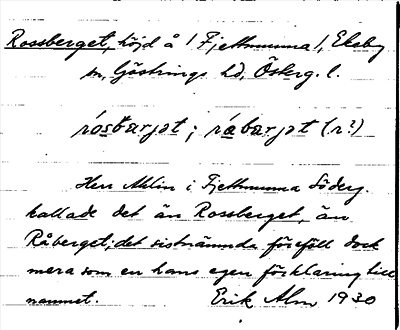 Rossberget, höjd å /Fjettmunna/, Ekeby
sn, Göstrings hd, Österg. l.
rósbarjət; råbarjət (r?)
Herr Ahlin i Fjettmunna Söderg.
kallade det än Rossberget, än
Råberget; det sistnämnda föreföll dock
mera som en hans egen förklaring till
namnet. Erik Alm 1930